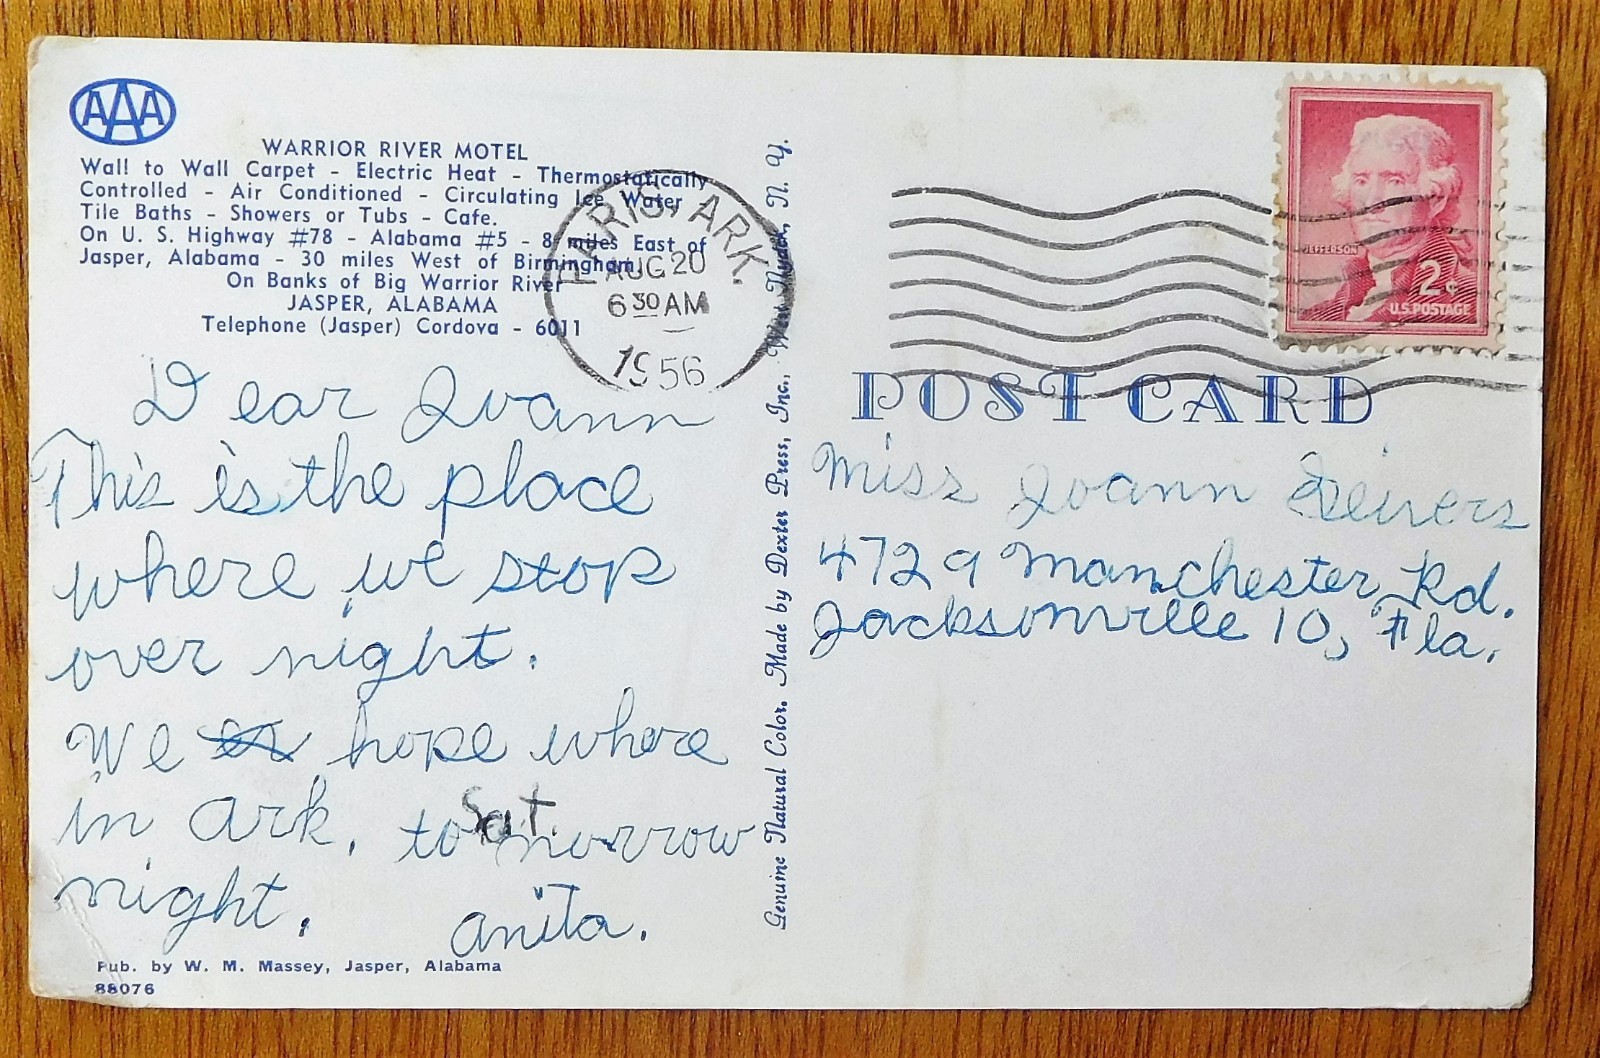 AAA
WARRIOR RIVER MOTEL
Wall to Wall Carpet - Electric Heat - Thermostatically
Controlled - Air Conditioned - Circulating Ice Water
Tile Baths - Showers or Tubs - Cafe.
On U. S. Highway #78 - Alabama #5 - 8 miles East of
Jasper, Alabama - 30 miles West of Birmingham,
On Banks of Big Warrior River
JASPER, ALABAMA
Telephone (Jasper) Cordova - 6011
PARIS, ARK.
AUG 20
6 30 AM
1956
Dear Joann
This is the place
where we stop
over night.
We hope where
in Ark. tomorrow
Sat.
night.
Anita.
Pub. by W. M. Massey, Jasper, Alabama
88076
Genuine Natural Color. Made by Dexter Press, Inc., West Nyack, N. Y.
JEFFERSON
2¢
U.S. POSTAGE
POST CARD
Miss Joann
4729 Manchester Rd.
Jacksonville 10, Fla.